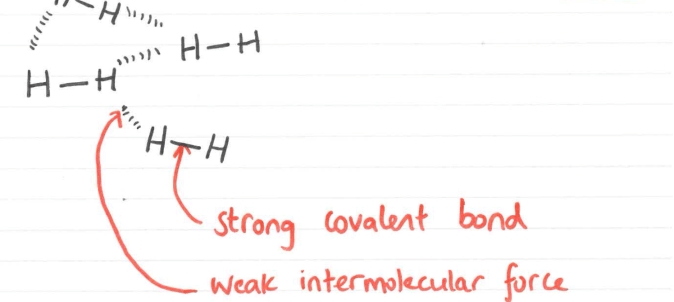 H-H
H-H
H-H
H-H
strong covalent bond
weak intermolecular force